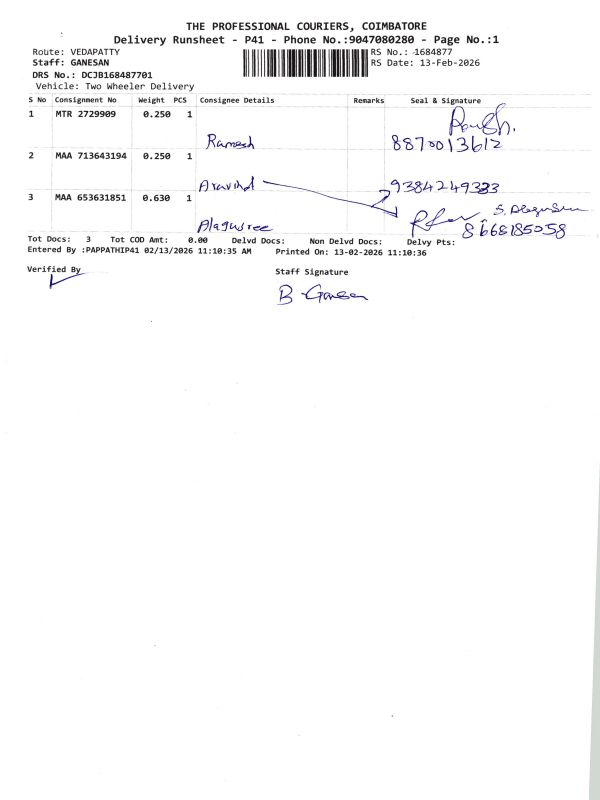 THE PROFESSIONAL COURIERS, COIMBATORE
Delivery Runsheet - P41 - Phone No.:9047080280 - Page No.:1
Route: VEDAPATTY
RS No.: 1684877
Staff: GANESAN
RS Date: 13-Feb-2026
DRS No.: DCJB168487701
Vehicle: Two Wheeler Delivery
S No Consignment No Weight PCS Consignee Details Remarks Seal & Signature
1 MTR 2729909 0.250 1
Ramesh 8870013612
2 MAA 713643194 0.250 1
Aravind 9384249323
3 MAA 653631851 0.630 1
Alagusree 8668185058
Tot Docs: 3 Tot COD Amt: 0.00 Delvd Docs: Non Delvd Docs: Delvy Pts:
Entered By :PAPPATHIP41 02/13/2026 11:10:35 AM Printed On: 13-02-2026 11:10:36
Verified By
Staff Signature
B Ganesan